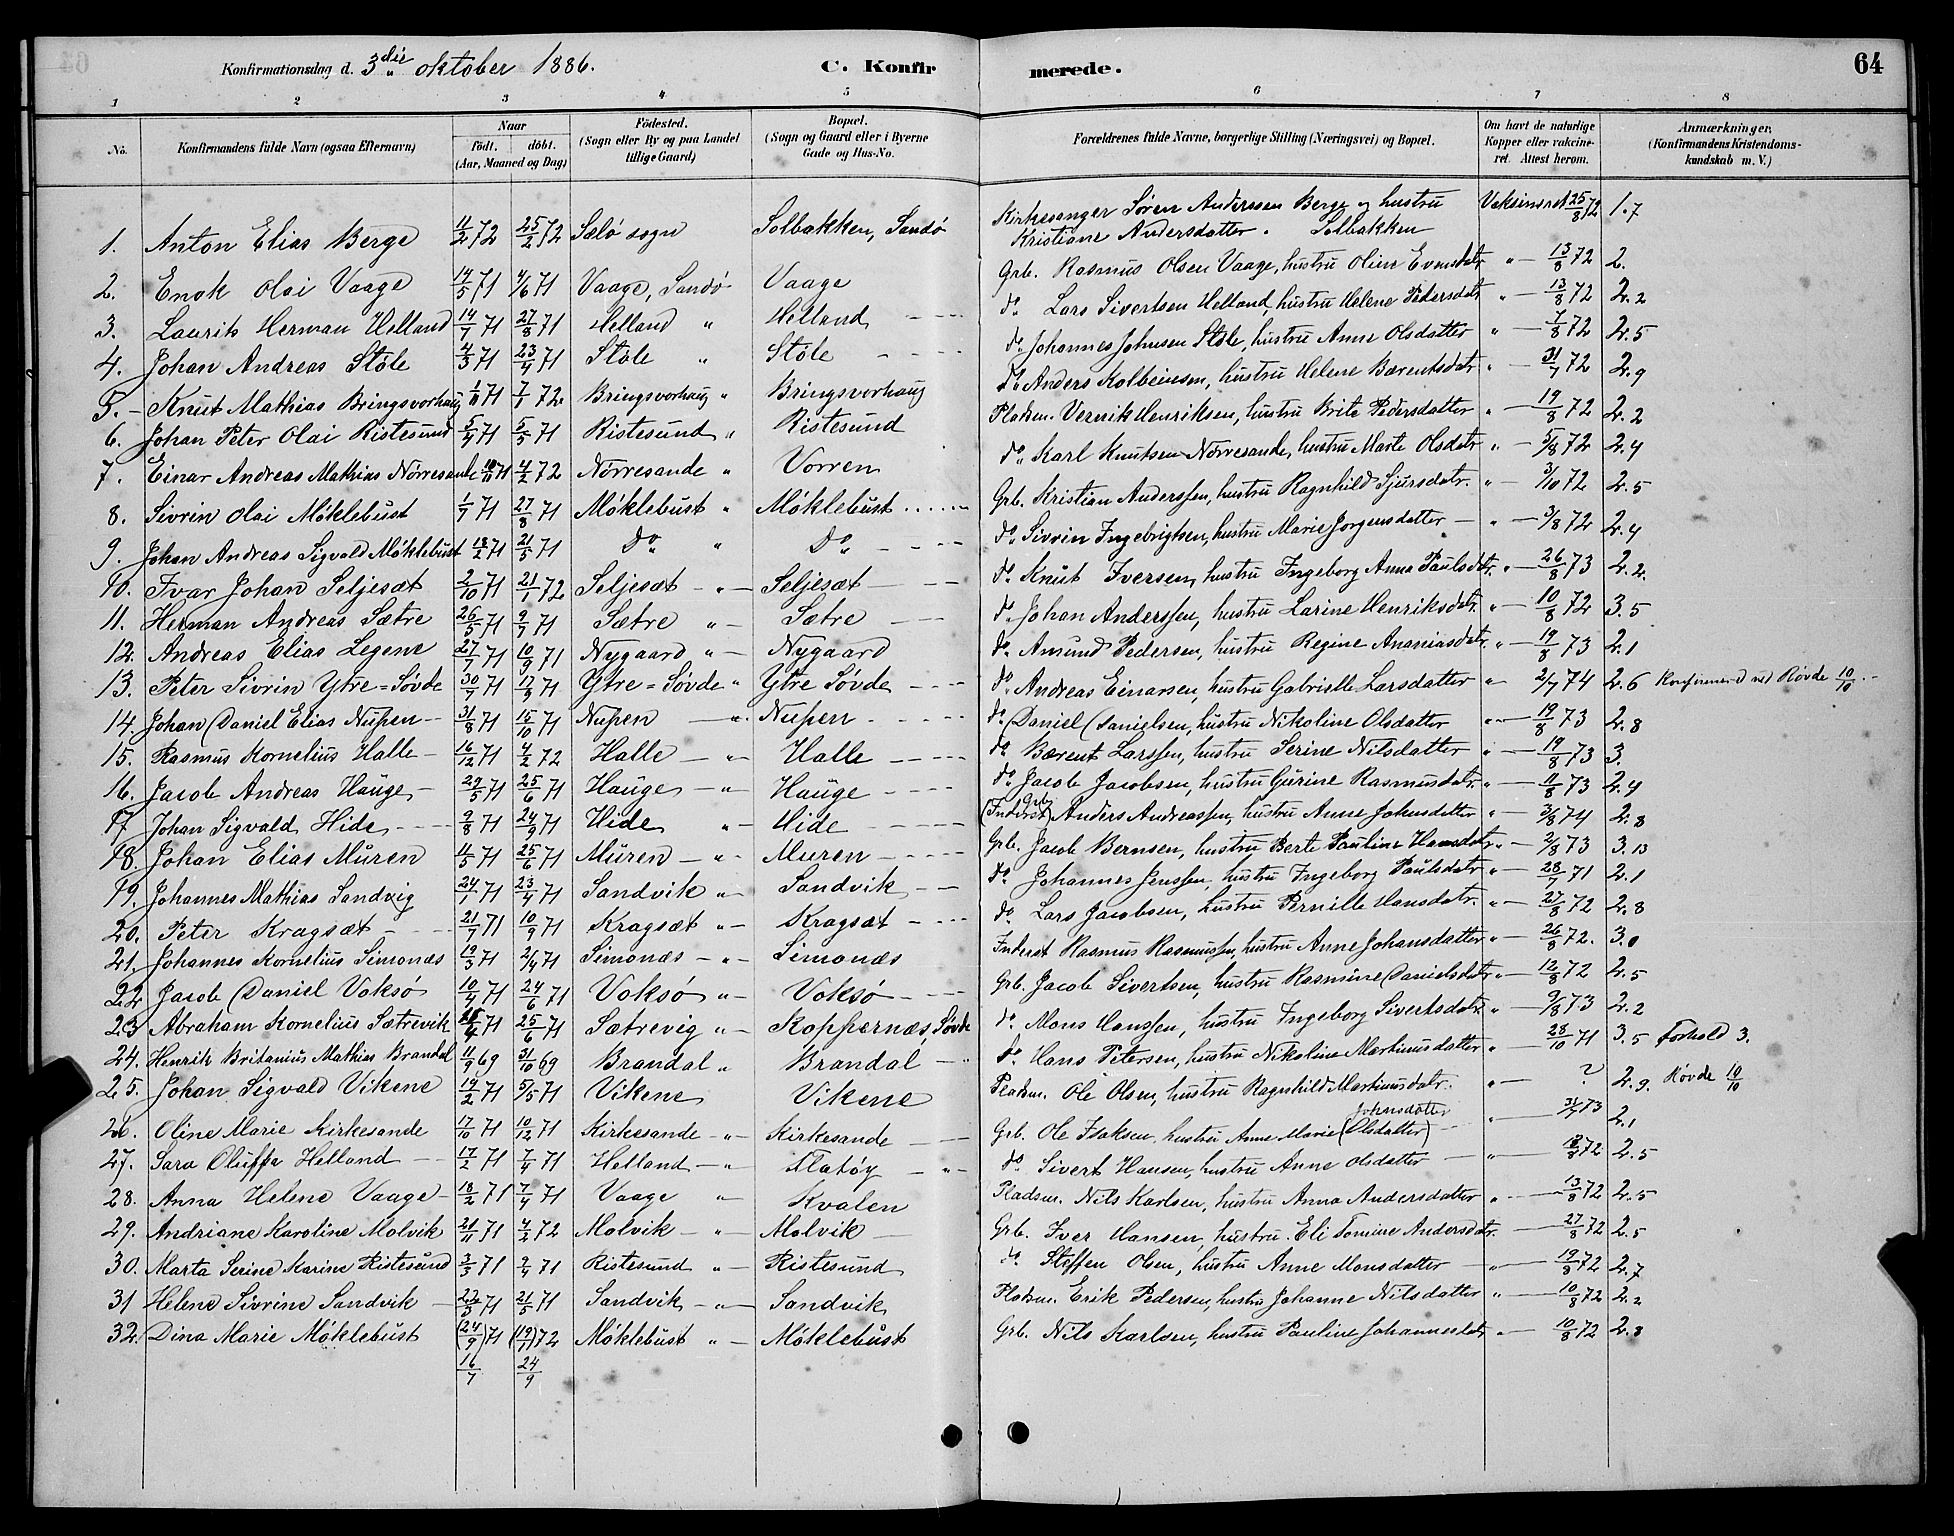 Konfirmationsdag d. 3die oktober 1886. C. Konfirmerede. 64
1 2 3 4 5 6 7 8
No. Konfirmandens fulde Navn (ogsaa Efternavn) Naar født. døbt. (Aar, Maaned og Dag) Fødested. (Sogn eller By og paa Landet tillige Gaard) Bopæl. (Sogn og Gaard eller i Byerne Gade og Hus-No. Forældrenes fulde Navne, borgerlige Stilling (Næringsvei) og Bopæl. Om havt de naturlige Kopper eller vakcineret. Attest herom. Anmærkninger, (Konfirmandens Kristendomskundskab m. V.)
1. Anton Elias Berge 11/2 72 25/2 72 Sælø sogn Solbakken, Sandø Kirkesanger Søren Anderssen Berge og hustru Kristiane Andersdatter. Solbakken Vaksineret 25/8 72 1.7
2. Enok Olai Vaage 14/5 71 4/6 71 Vaage, Sandø Vaage Grb. Rasmus Olsen Vaage, hustru Oline Evensdatr " — 13/8 72 2.
3. Laurits Herman Helland 14/7 71 27/8 71 Helland " Helland do Lars Sivertsen Helland, hustru Helene Pedersdatr " — 13/8 72 2.2
4. Johan Andreas Støle 4/3 71 23/4 71 Støle " Støle do Johannes Johnsen Støle, hustru Anne Olsdatter " — 7/8 72 2.5
5. Knut Mathias Bringsvorhaug 1/11 71 7/1 72 Bringsvorhaug " Bringsvorhaug do Anders Kolbeinsen, hustru Helene Bærentsdatr " — 31/7 72 2.9
6. Johan Peter Olai Ristesund 5/4 71 5/5 71 Ristesund " Ristesund Pladsm. Verrik Henriksen, hustru Brite Pedersdatter " — 19/8 72 2.2
7. Einar Andreas Mathias Nørresande 71 4/2 72 Nørresande " Vorren do Karl Knutsen Nørresande, hustru Marte Olsdatr " — 5/8 72 2.4
8. Sivrin Olai Møklebust 1/7 71 27/8 71 Møklebust " Møklebust Grb. Kristian Anderssen, hustru Ragnhild Sjursdatr. " — 3/10 72 2.5
9. Johan Andreas Sigvald Møklebust 18/2 71 21/5 71 Do " Do do Sivrin Ingebrigtsen, hustru Marie Jørgensdatter " — 3/8 72 2.4
10. Ivar Johan Seljesæt 2/10 71 21/1 72 Seljesæt " Seljesæt do Knut Iversen, hustru Ingeborg Anna Paulsdtr. " — 26/8 73 2.2.
11. Herman Andreas Sætre 26/5 71 9/7 71 Sætre " Sætre do Johan Anderssen, hustru Larine Henriksdatr. " — 10/8 72 3.5
12. Andreas Elias Legene 27/7 71 10/9 71 Nygaard " Nygaard do Amund Pedersen, hustru Regine Ananiasdatr. " — 19/8 73 2.1
13. Peter Sivrin Ytre=Søvde 30/7 71 17/9 71 Ytre=Søvde " Ytre Søvde do Andreas Einarsen, hustru Gabrielle Larsdatter " 2/7 74 2.6 Konfirmered ved Røvde 10/10.
14. Johan Daniel Elias Nupen 31/8 71 15/10 71 Nupen " Nupen do Daniel Danielsen, hustru Nikoline Olsdatter " — 19/8 73 2.8
15. Rasmus Kornelius Halle 16/12 71 4/2 72 Halle " Halle do Bærent Larssen, hustru Serine Nilsdatter " — 19/8 73 3.
16. Jacob Andreas Hauge 29/5 71 25/6 71 Hauge " Hauge do Jacob Jacobsen, hustru Gurine Rasmusdatr. " — 11/8 73 2.4
17. Johan Sigvald Hide 9/8 71 24/9 71 Hide " Hide (Inderst) Grb. Anders Andreassen, hustru Anne Johnsdatter " — 3/8 74 2.8
18. Johan Elias Muren 11/5 71 25/6 71 Muren " Muren Grb. Jacob Bernsen, hustru Berte Pauline Hansdatr " — 2/8 73 3.13
19. Johannes Mathias Sandvig 24/1 71 23/4 71 Sandvik " Sandvik do Johannes Jenssen, hustru Ingeborg Paulsdatr " — 28/7 71 2.1
20. Peter Kragsæt 21/7 71 10/9 71 Kragsæt " Kragsæt do Lars Jacobsen, hustru Pernille Hansdatr. " — 27/8 72 2.8
21. Johannes Kornelius Simonæs 19/3 71 2/4 71 Simonæs " Simonæs Inderst Rasmus Rasmussen, hustru Anne Johansdatter " — 26/8 72. 3.0
22. Jacob Daniel Voksø 10/4 71 24/6 71 Voksø " Voksø Grb. Jacob Sivertsen, hustru Rasmine Danielsdatr " — 12/8 72 2.5
23. Abraham Kornelius Sætrevik 71 25/6 71 Sætrevig " Koppernæs, Søvde do Mons Hanssen, hustru Ingeborg Sivertsdatr. " — 9/8 73 2.2
24. Henrik Britanius Mathias Brandal 11/9 69 31/10 69 Brandal " Brandal do Hans Petersen, hustru Nikoline Martinusdatter " — 28/10 71 3.5 Forhold 3.
25. Johan Sigvald Vikene 19/2 71 5/5 71 Vikene Vikene Pladsm. Ole Olsen, hustru Ragnhild Martinusdatr. " — ? 2.9. Røvde 10/10
26. Oline Marie Kirkesande 17/10 71 10/12 71 Kirkesande " Kirkesande Grb. Ole Isaksen, hustru Anne Marie Johnsdatter (Olsdatter) " — 31/7 73 2.1
27. Sara Oluffa Helland 17/2 71 7/4 71 Helland " Flatøy do Sivert Hansen, hustru Anne Olsdatter " 72 2.5
28. Anna Helene Vaage 18/2 71 7/4 71 Vaage " Kvalen Pladsm. Nils Karlsen, hustru Anna Andersdatter " — 13/8 72 2.5
29. Andriane Karoline Molvik 21/11 71 4/2 72 Molvik " Molvik Grb. Iver Hansen, hustru Eli Tomine Andersdatr. — 27/8 72 2.5
30. Marta Serine Karine Ristesund 3/3 71 9/4 71 Ristesund " Ristesund do Steffen Olsen, hustru Anne Monsdatter " — 19/8 72 2.7
31 Helene Sivrine Sandvik 22/3 71 21/5 71 Sandvik " Sandvik Pladsm. Erik Pedersen, hustru Johanne Nilsdatter " — 10/8 72 2.2
32. Dina Marie Møklebust (24/9) 71 (19/7) 72 Møklebust " Møklebust Grb. Nils Karlsen, hustru Pauline Johannesdatr " — 10/8 72 2.8
16/7 24/9